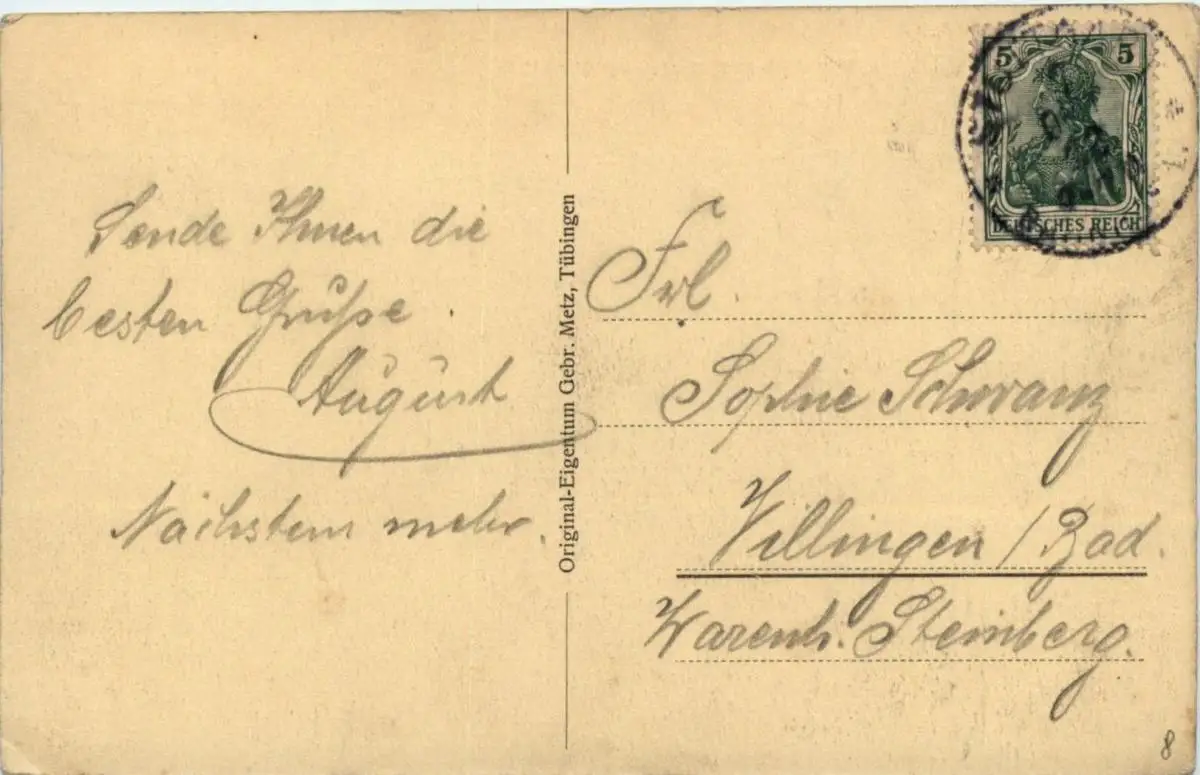 Sende Ihnen die
besten Grüße
August
Nächstens mehr.
Original-Eigentum Gebr. Metz, Tübingen
5 5
DEUTSCHES REICH
Frl.
Sophie Schwanz
Villingen / Bad.
Warenh. Steinberg.
8